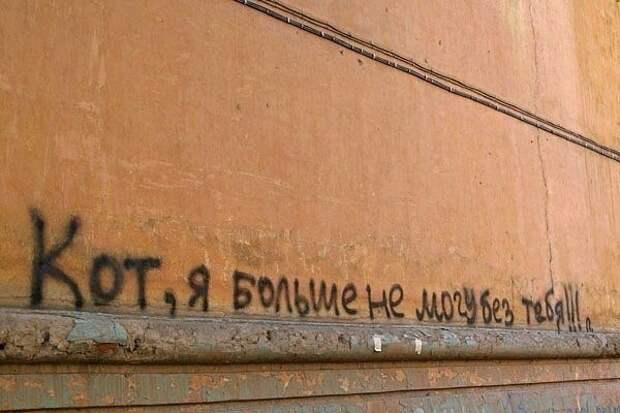 Кот, я больше не могу без тебя!!!